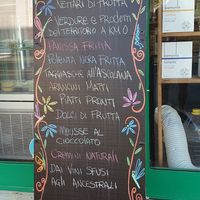 NETTARI DI FRUTTA
VERDURE E PRODOTTI
DEL TERRITORIO A KM 0
PANISSA FRITTA
POLENTA NERA FRITTA
TAGGIASCHE ALL'ASCOLANA
ARANCINI MATTI
PIATTI PRONTI
DOLCI DI FRUTTA
MOUSSE AL
CIOCCOLATO
CREMINI NATURALI
DAI VINI SFUSI
AGLI ANCESTRALI